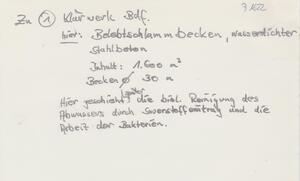 7 1622
Zu ① Klärwerk Bdf.
hier: Belebtschlammbecken, wasserdichter
Stahlbeton
Inhalt: 1.600 m³
Becken ⌀ 30 m
später
Hier geschieht die biol. Reinigung des
Abwassers durch Sauerstoffeintrag und die
Arbeit der Bakterien.